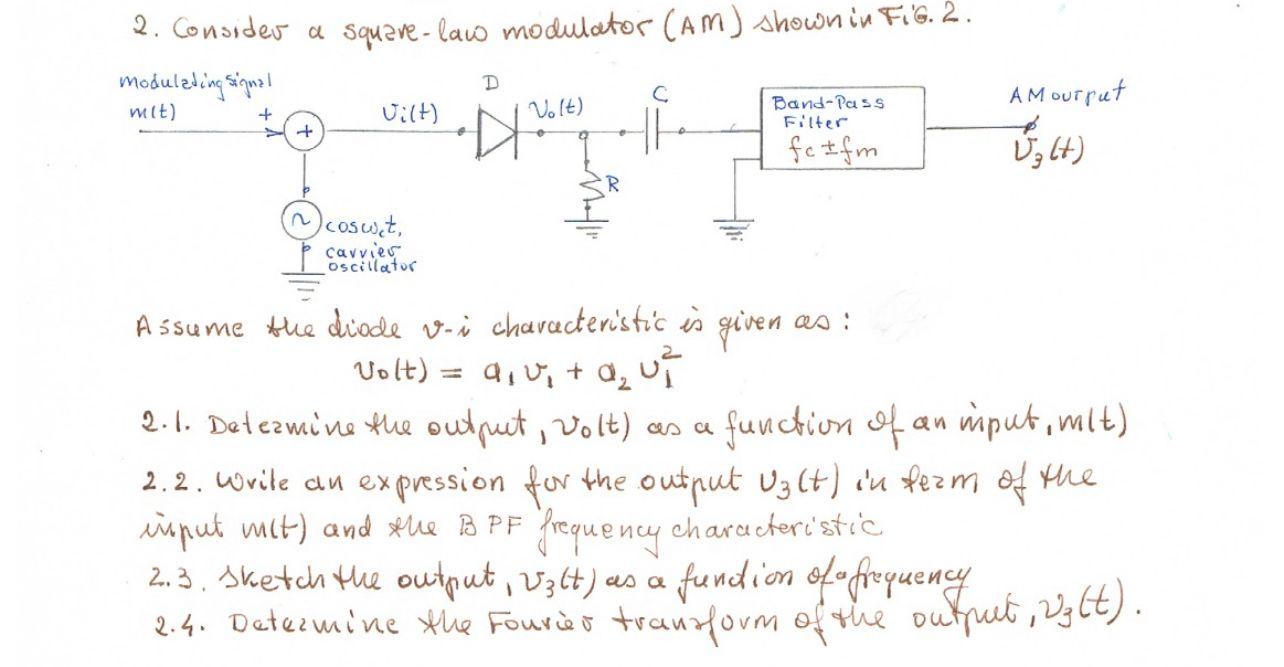 2. Consider a square-law modulator (AM) shown in FIG. 2.
modulating signal
m(t)
+
+
Vi(t)
D
Vo(t)
C
R
Band-Pass
Filter
fc ± fm
AM ourput
V3(t)
cosωct,
carrier
oscillator
Assume the diode v-i characteristic is given as:
Vo(t) = a1 v1 + a2 v1²
2.1. Determine the output, Vo(t) as a function of an input, m(t)
2.2. Write an expression for the output V3(t) in term of the
input m(t) and the BPF frequency characteristic
2.3. Sketch the output, V3(t) as a function of a frequency
2.4. Determine the Fourier transform of the output, V3(t).